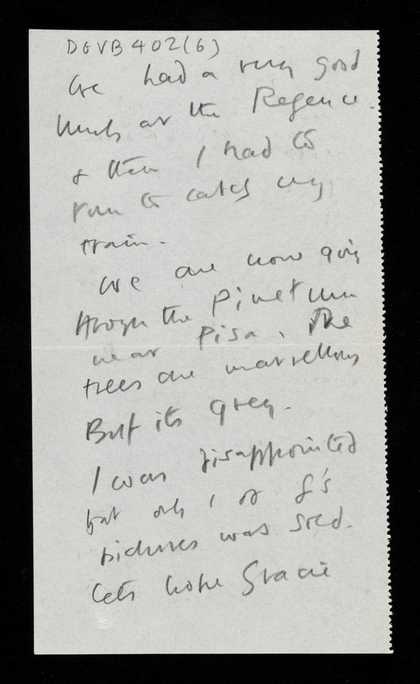 DGVB402(6)
We had a very good
lunch at the Regence.
& then I had to
run to catch my
train.
We are now going
through the Pinetum
near Pisa. The
trees are marvellous
But its grey.
I was disappointed
that only 1 of G's
pictures was sold.
Lets hope Gracie